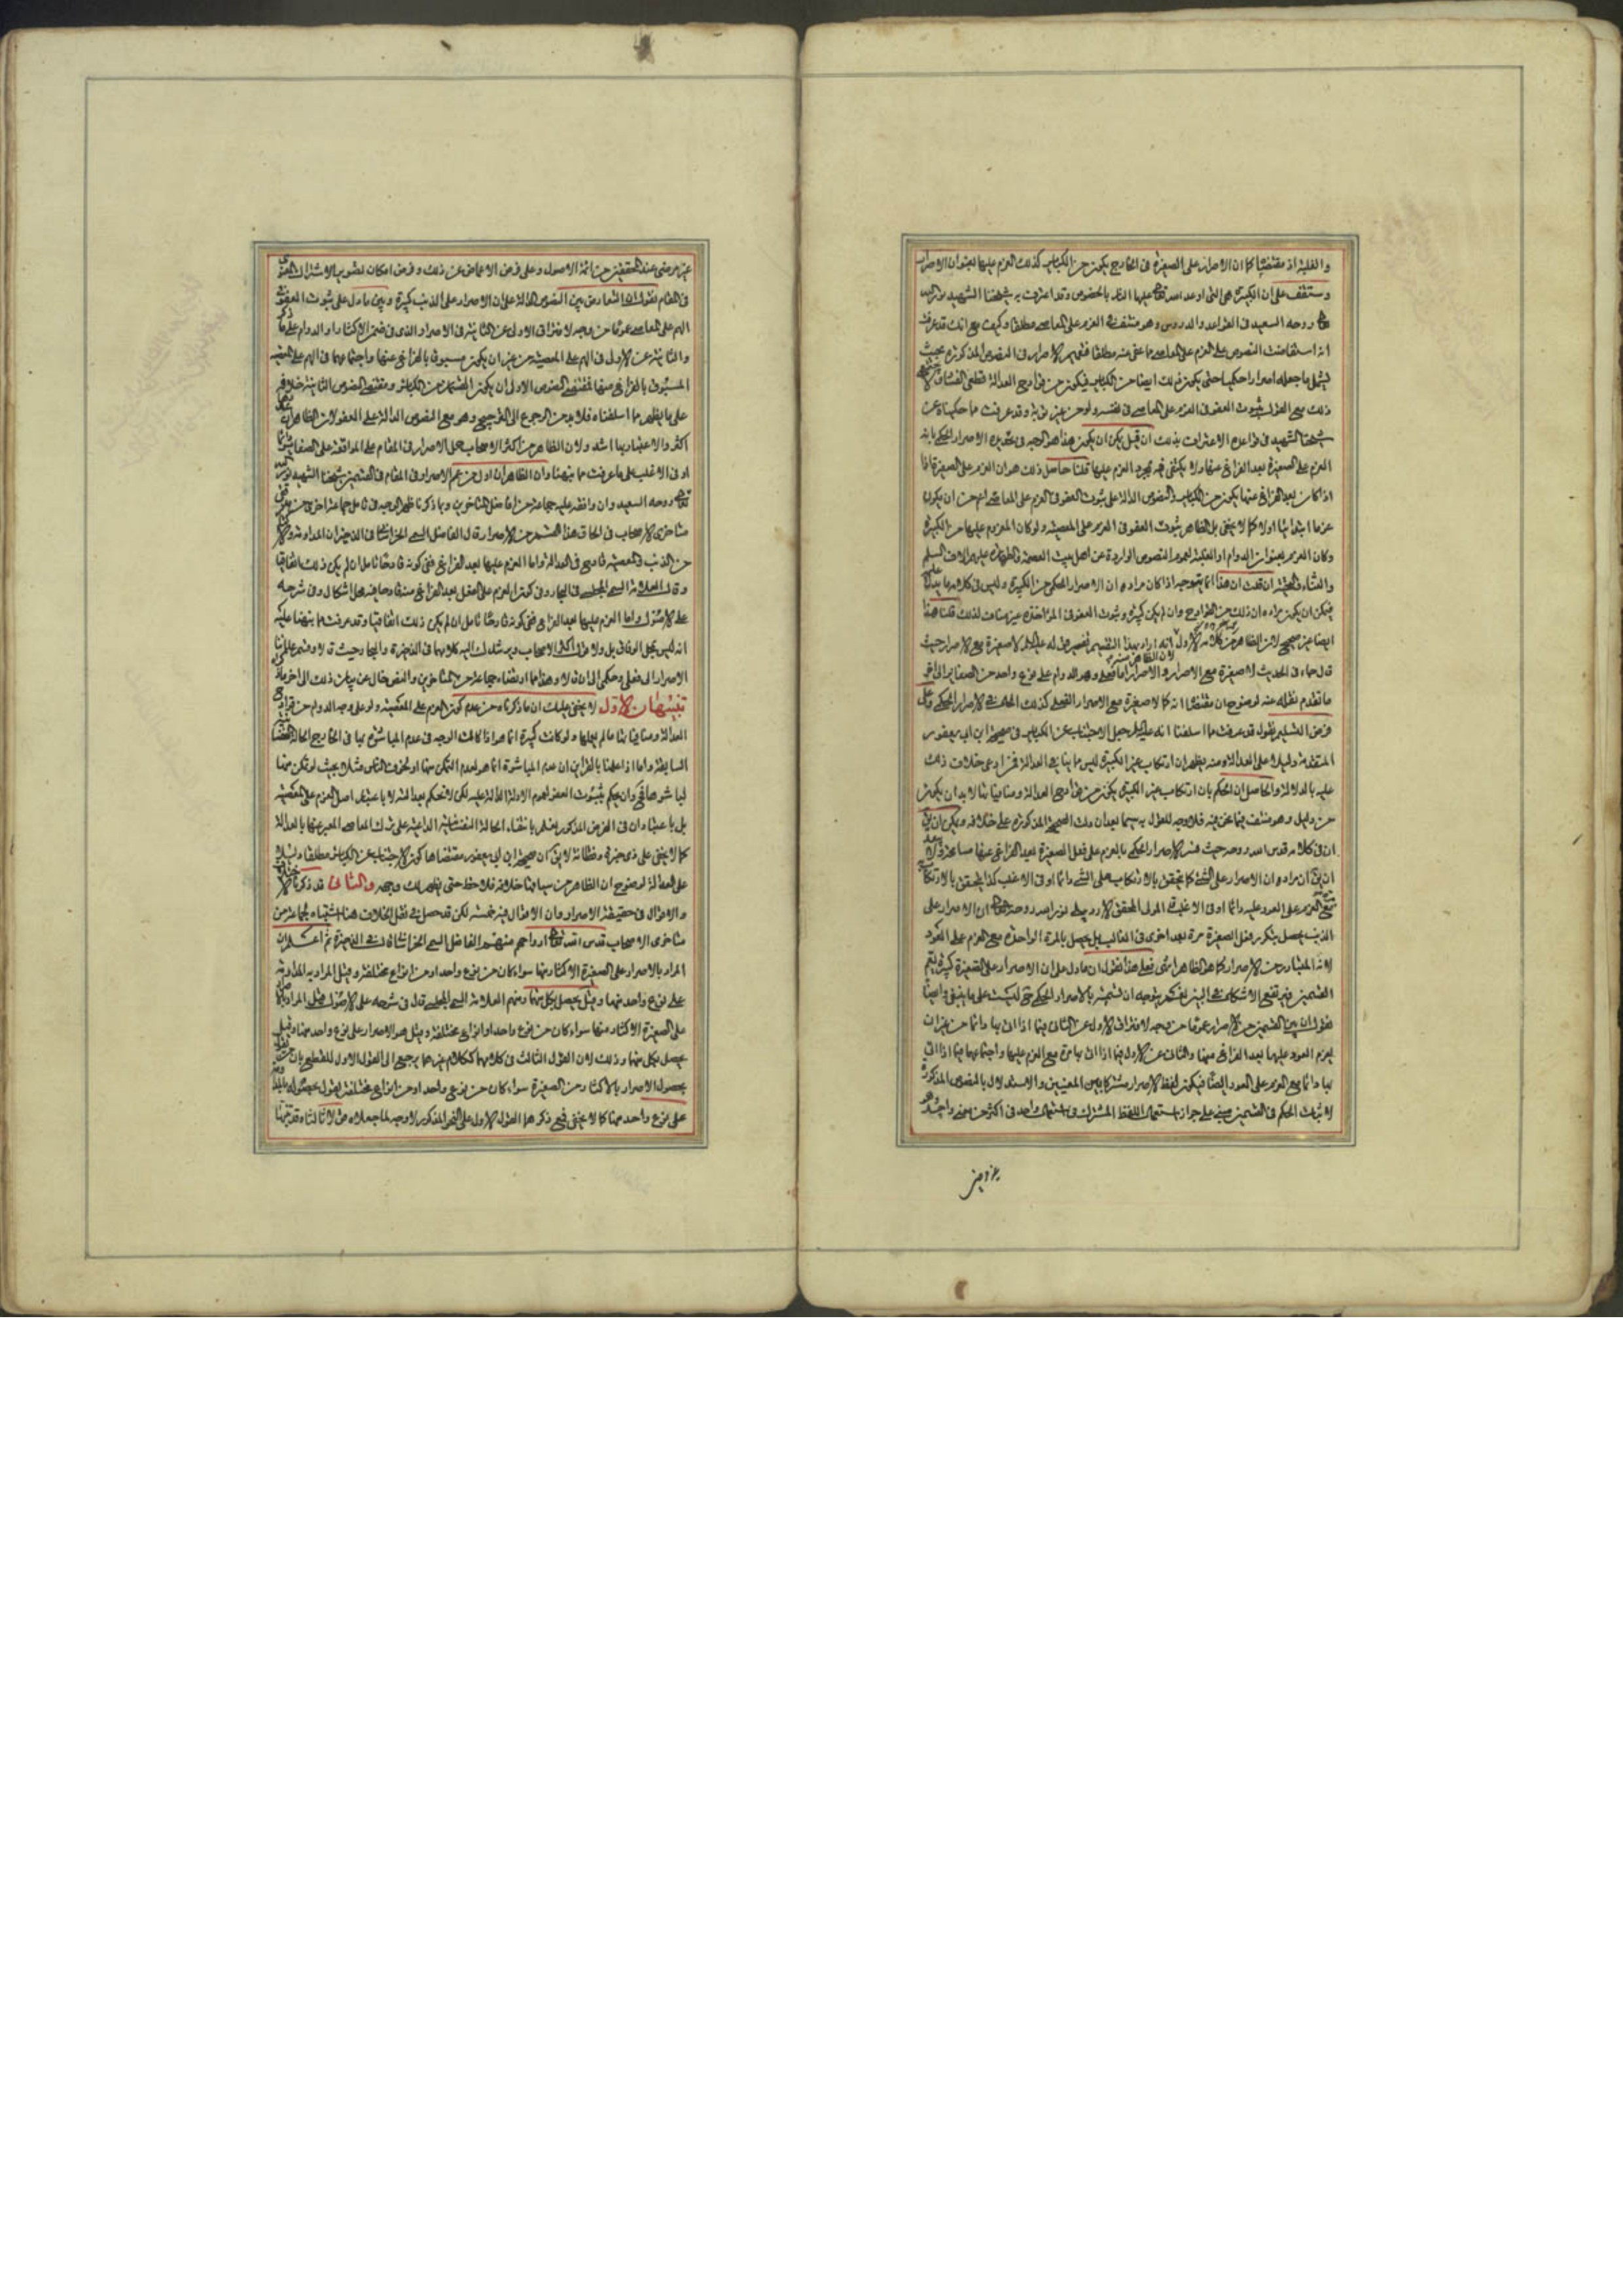 والغلبة اذ مقتضيا كما ان الاصرار على الصغيرة في الخارج يكون من الكباير كذلك العزم عليها بعنوان الاصرار
وستقف على ان الكبيرة هي التي اوعد الله تعالى عليها النار بالخصوص وقد اعترف به شيخنا الشهيد نور الله
روحه السعيد في القواعد والدروس وهو منتف في العزم على المعاصي مطلقا وكيف مع انك قد عرفت
انه استفاضت النصوص على العزم على المعاصي مما عفى عنه مطلقا الاصرار في النصوص المذكورة بحيث
يشمل ما جعله اصرارا حكميا حتى يكون ذلك ايضا من الكباير فيكون من قوادح العدالة قطعي الفساد
ذلك مع القول بثبوت العفو في العزم على المعاصي في نفسه ولو من غير توبة وقد عرفت ما حكيناه عن
شيخنا الشهيد في قواعده الاعتراف بذلك ان قيل يمكن ان يكون هذا هو الوجه في تقييده الاصرار الحكمي بانه
العزم على الصغيرة بعد الفراغ عنها ولا يكتفي فيه بمجرد العزم عليها قلنا حاصل ذلك هو ان العزم على الصغيرة اذا
اذا كان بعد الفراغ عنها يكون من الكباير والنصوص الدالة على ثبوت العفو في العزم على المعاصي اعم من ان يكون
عزما ابتدائيا اولا كما لا يخفى بل الظاهر ثبوت العفو في العزم على المعصية ولو كان المعزوم عليها من الكبيرة
وكان العزم بعنوان الدوام او الغلبة لعموم النصوص الواردة عن اهل بيت العصمة والطهارة عليهم الاف السلم
والثناء والتحية ان قلت ان هذا انما يتوجه اذا كان مراده ان الاصرار الحكمي من الكبيرة وليس في كلامه ما يدل
فيمكن ان يكون مراده ان ذلك من القوادح وان لم يكن كبيرة وثبوت العفو في المؤاخذة غير مناف لذلك قلنا هذا
ايضا غير صحيح لان الظاهر من كلامه الاول انه اراد بهذا التقسيم تفسير قوله عليه السلم لا صغيرة مع الاصرار حيث
قال جاء في الحديث لا صغيرة مع الاصرار والاصرار اما فعلي وهو الدوام على نوع واحد من الصغاير الى اخر
ما تقدم نقله عنه لوضوح ان مقتضيا انه كما لا صغيرة مع الاصرار الفعلي كذلك الحال في الاصرار الحكمي وعلى
فرض التسليم نقول قد عرفت مما اسلفنا انه عليه السلم جعل الاجتناب عن الكباير في صحيحة ابن ابي يعفور
المتقدمة دليلا على العدالة ومنه يظهر ان ارتكاب غير الكبيرة ليس مما ينافي العدالة فمن ادعى خلاف ذلك
عليه بالدلالة والحاصل ان الحكم بان ارتكاب غير الكبيرة يكون من قوادح العدالة ومنافيا لها لا بد ان يكون
من دليل وهو منتف فيما نحن فيه فلا وجه للقول به سيما بعد ان دلت الصحيحة المذكورة على خلافه ويمكن ان يق
ان في كلامه قدس الله روحه حيث فسر الاصرار الحكمي بالعزم على فعل الصغيرة بعد الفراغ عنها مسامحة ولا بعد
ان يق ان مراده ان الاصرار على الشيء كما يتحقق بالارتكاب على الشيء دائما او في الاغلب كذا يتحقق بالارتكاب
مع العزم على العود عليه دائما او في الاغلب قال المولى المحقق الاردبيلي نور الله روحه ان الاصرار على
الذنب يحصل بتكرر فعل الصغيرة مرة بعد اخرى في الغالب بل يحصل بالمرة الواحدة مع العزم على العود
لانه المتبادر من الاصرار كما هو الظاهر انتهى فعلى هذا نقول ان ما دل على ان الاصرار على الصغيرة كبيرة يعم
القسمين فيرتفع الاشكال في البين لكن يتوجه ان تسميته بالاصرار الحكمي ليست على ما ينبغي وايضا
نقول ان بين القسمين من الاصرار عموما من وجه لافتراق الاول عن الثاني فيما اذا اتى بها دائما من غير ان
يعزم العود عليها بعد الفراغ منها والثاني عن الاول فيما اذا اتى بها مرة مع العزم عليها واجتماعهما فيما اذا اتى
بها دائما مع العزم على العود ايضا فيكون لفظ الاصرار مشتركا بين المعنيين والاستدلال بالنصوص المذكورة
لاثبات الحكم في القسمين مبني على جواز استعمال اللفظ المشترك في استعمال واحد في اكثر من معنى واحد وهو
غير مرضي
غير مرضي عند المحققين من ائمة الاصول وعلى فرض الاغماض عن ذلك وفرض امكان تصوير الاشتراك المعنوي
في المقام نقول ان التعارض بين النصوص الدالة على ان الاصرار على الذنب كبيرة وبين ما دل على ثبوت العفو في
الهم على المعاصي عموما من وجه لافتراق الاولى عن الثانية في الاصرار الذي في ضمن الاكثار او الدوام على ما ذكر
والثانية عن الاولى في الهم على المعصية من غير ان يكون مسبوقا بالفراغ عنها واجتماعهما في الهم على المعصية
المسبوق بالفراغ منها فمقتضى النصوص الاولى ان يكون القسمان من الكباير ومقتضى النصوص الثانية خلافه
على ما يظهر مما اسلفناه فلا بد من الرجوع الى الترجيح وهو مع النصوص الدالة على العفو لان الظاهر انها
اكثر والاعتماد بها اشد ولان الظاهر من اكثر الاصحاب حمل الاصرار في المقام على المواقعة على الصغاير دائما
او في الاغلب على ما عرفت مما نبهنا وان الظاهر ان اول من عمم الاصرار في المقام في القسمين شيخنا الشهيد نور الله
تعالى روحه السعيد وان وافقه عليه جماعة من افاضل المتاخرين وبما ذكرنا ظهر الوجه في تامل جماعة اخرى من
متاخري الاصحاب في الحاق هذا القسم من الاصرار قال الفاضل السمي الخراساني في الذخيرة ان المداومة والاكثار
من الذنب والمعصية قادح في العدالة واما العزم عليها بعد الفراغ ففي كونه قادحا تامل ان لم يكن ذلك اتفاقيا
وقال العلامة السمي المجلسي في البحار وفي كون العزم على الفعل بعد الفراغ منه قادحا فيه محل اشكال وفي شرحه
على الاصول واما العزم عليها بعد الفراغ ففي كونه قادحا تامل ان لم يكن ذلك اتفاقيا وقد عرفت مما نبهنا عليه
انه ليس محل الوفاق بل ولا قول اكثر الاصحاب ويرشدك اليه كلامهما في الذخيرة والبحار حيث قالا وقسم علمائنا
الاصرار الى فعلي وحكمي الى ان قالا وهذا مما ارتضاه جماعة من المتاخرين والنص خال عن بيان ذلك الى اخر ما ذكراه
تنبيهان الاول لا يخفى عليك ان ما ذكرناه من عدم كون العزم على المعصية ولو على وجه الدوام من قوادح
العدالة ومنافيا لها ما لم يفعلها ولو كانت كبيرة انما هو اذا كانت الوجه في عدم المباشرة بها في الخارج الحالة النفسانية
السابقة واما اذا علمنا بالقراين ان عدم المباشرة انما هو لعدم التمكن منها او لخوف الناس مثلا بحيث لو تمكن منها
لباشرها فح وان يحكم بثبوت العفو لعموم الادلة الدالة عليه لكن لا نحكم بعدالته لا باعتبار اصل العزم على المعصية
بل باعتبار ان في الفرض المذكور يعلم بانتفاء الحالة النفسانية الداعية على ترك المعاصي المعبر عنها بالعدالة
كما لا يخفى على ذي خبرة وفطانة لا يق ان صحيحة ابن ابي يعفور مقتضاها كون الاجتناب عن الكباير مطلقا دليلا
على العدالة لوضوح ان الظاهر من سياقها خلافه فلاحظ حتى يظهر لك وجهه والثاني قد ذكرنا الاختلاف
والاقوال في حقيقة الاصرار وان الاقوال فيه خمسة لكن قد حصل في نقل الخلاف هنا اشتباه لجماعة من
متاخري الاصحاب قدس الله تعالى ارواحهم منهم الفاضل السمي الخراساني قال في الذخيرة ثم اعلم ان
المراد بالاصرار على الصغيرة الاكثار منها سواء كان من نوع واحد او من انواع مختلفة وقيل المراد به المداومة
على نوع واحد منها وقيل يحصل بكل منهما ومنهم العلامة السمي المجلسي قال في شرحه على الاصول قيل المراد بالاصرار
على الصغيرة الاكثار منها سواء كان من نوع واحد او انواع مختلفة وقيل هو الاصرار على نوع واحد منها وقيل
يحصل بكل منهما وذلك لان القول الثالث في كلامهما ككلام غيرهما يرجع الى القول الاول للقطع بان
بحصول الاصرار بالاكثار من الصغيرة سواء كان من نوع واحد او من انواع مختلفة يقول بحصوله
على نوع واحد منها كما لا يخفى فبعد ذكر هذا القول الاول على النحو المذكور لا وجه لما جعلاه قولا ثالثا